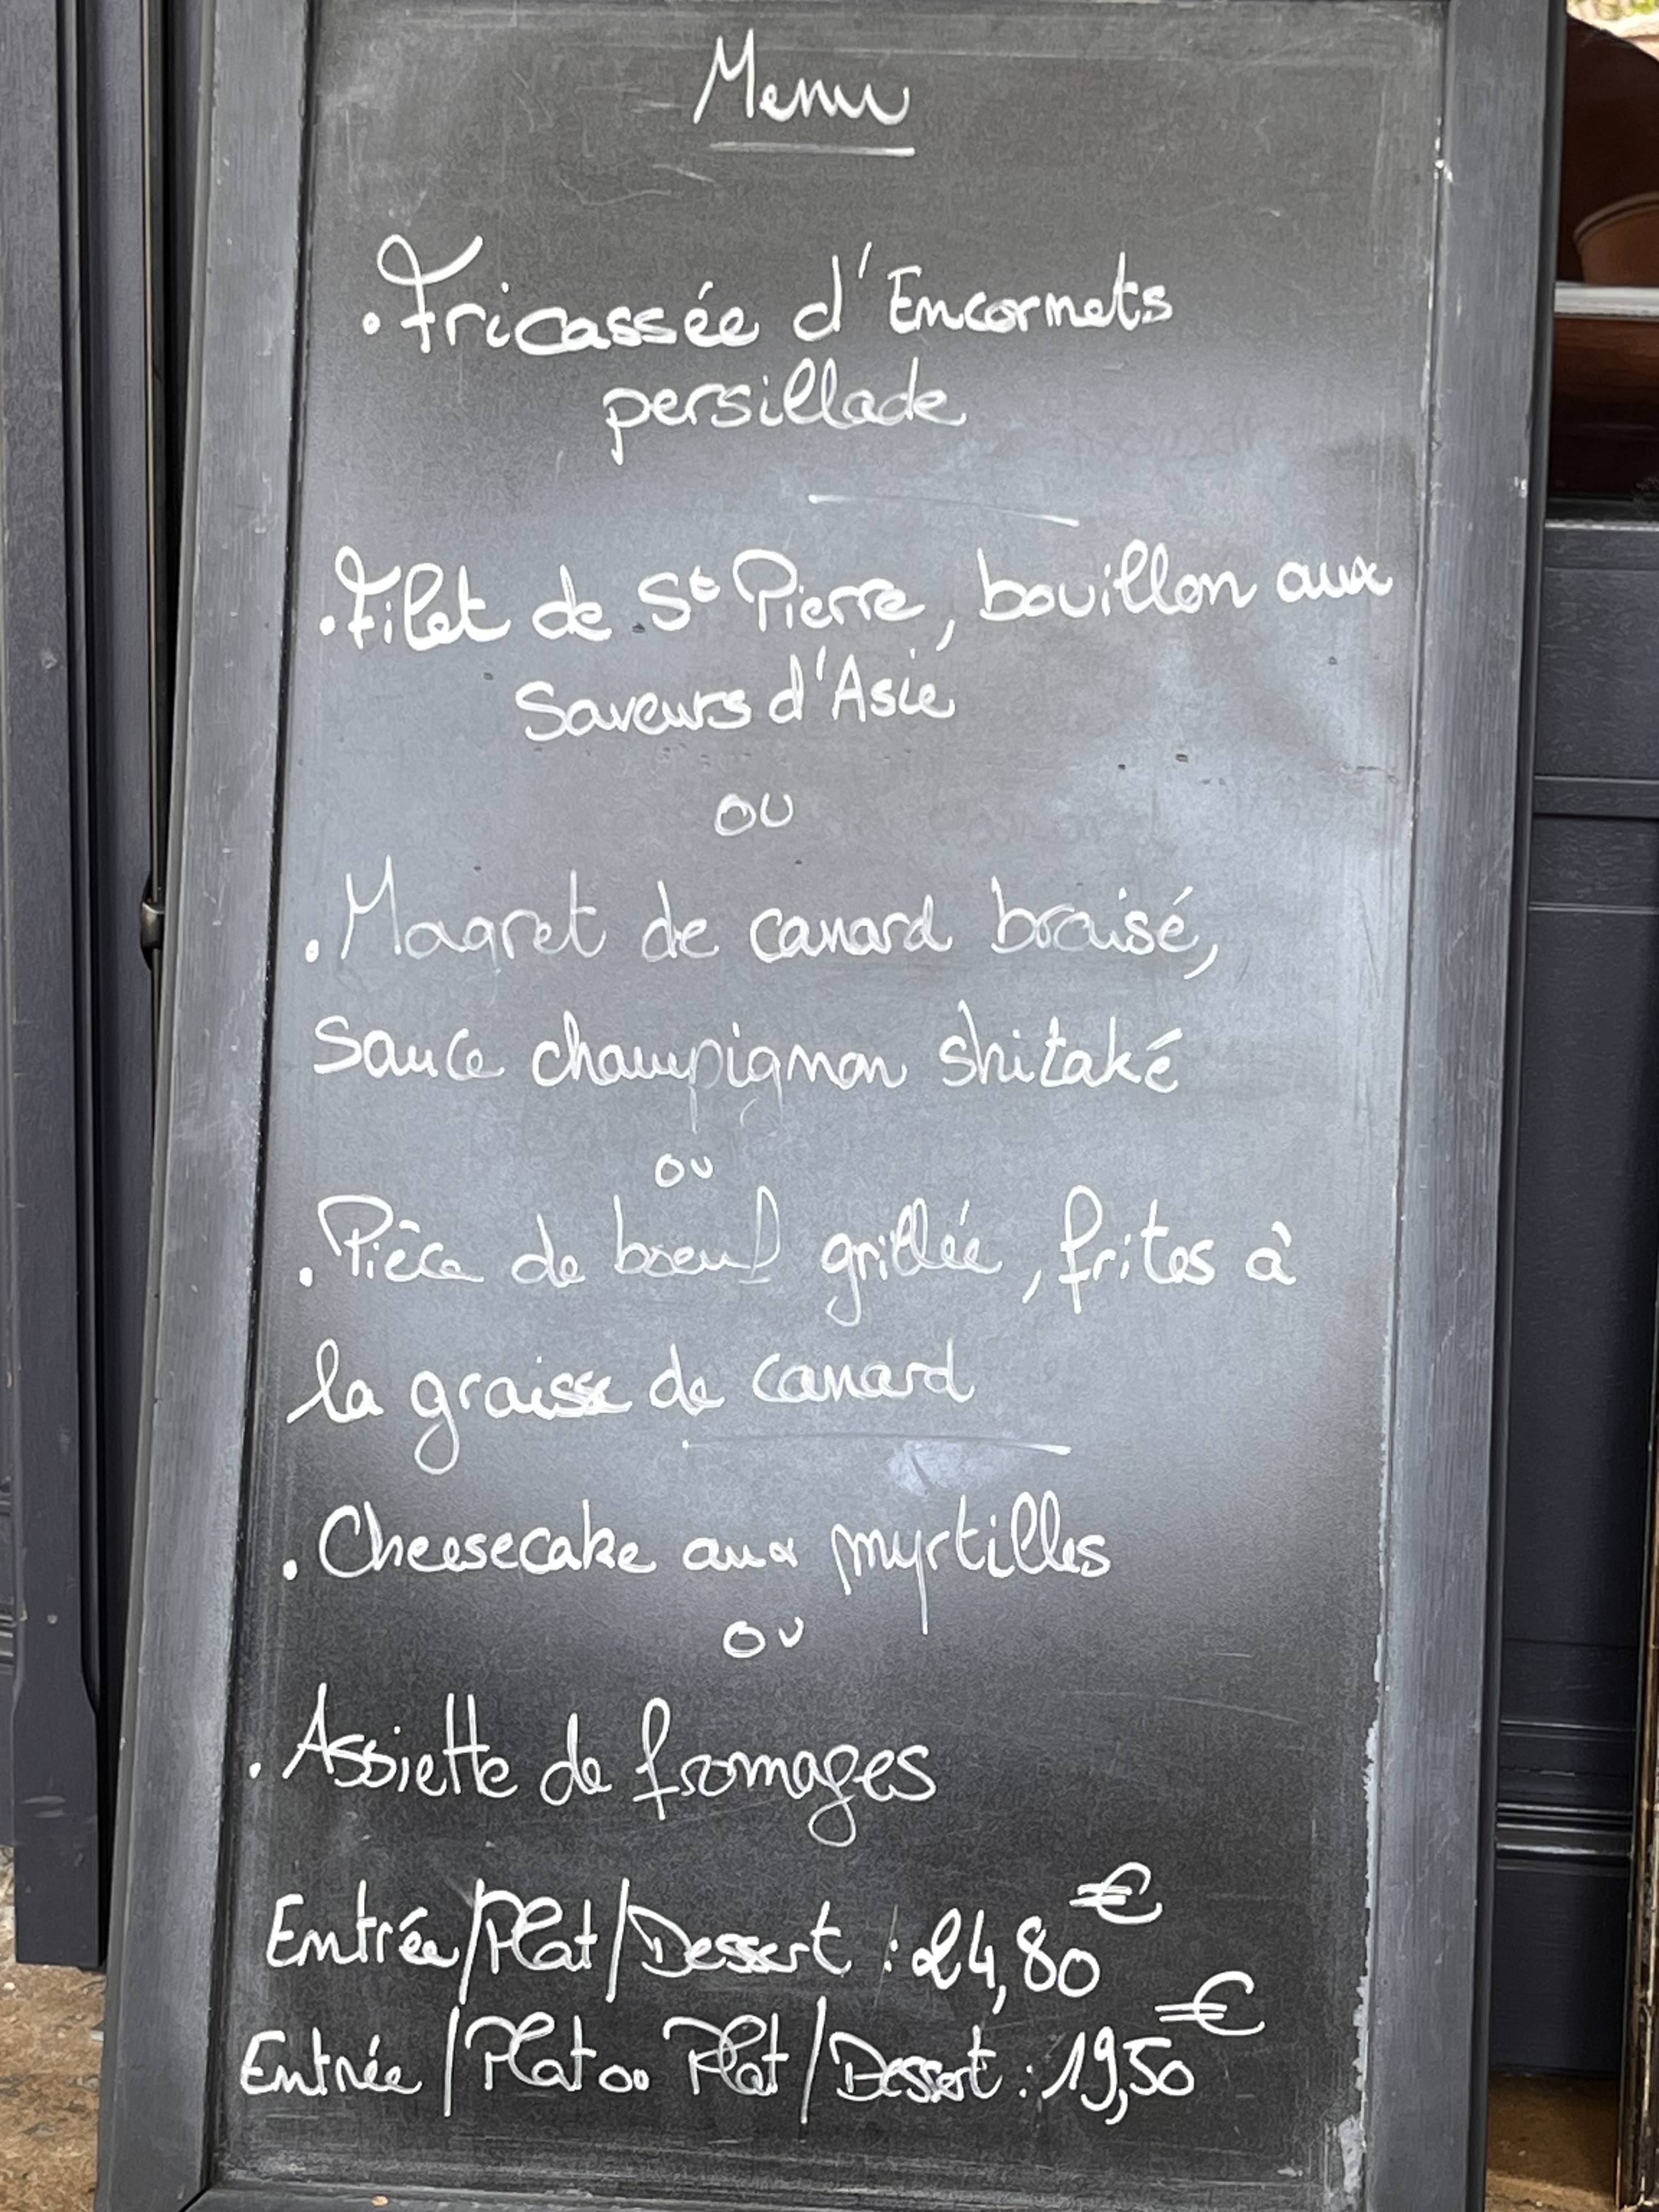 Menu
. Fricassée d'Encornets
persillade
. Filet de St Pierre, bouillon aux
Saveurs d'Asie
ou
. Magret de canard braisé,
Sauce champignon shitaké
ou
. Pièce de boeuf grillée, frites à
la graisse de canard
. Cheesecake aux myrtilles
ou
. Assiette de fromages
Entrée/Plat/Dessert : 24,80€
Entrée/Plat ou Plat/Dessert : 19,50€